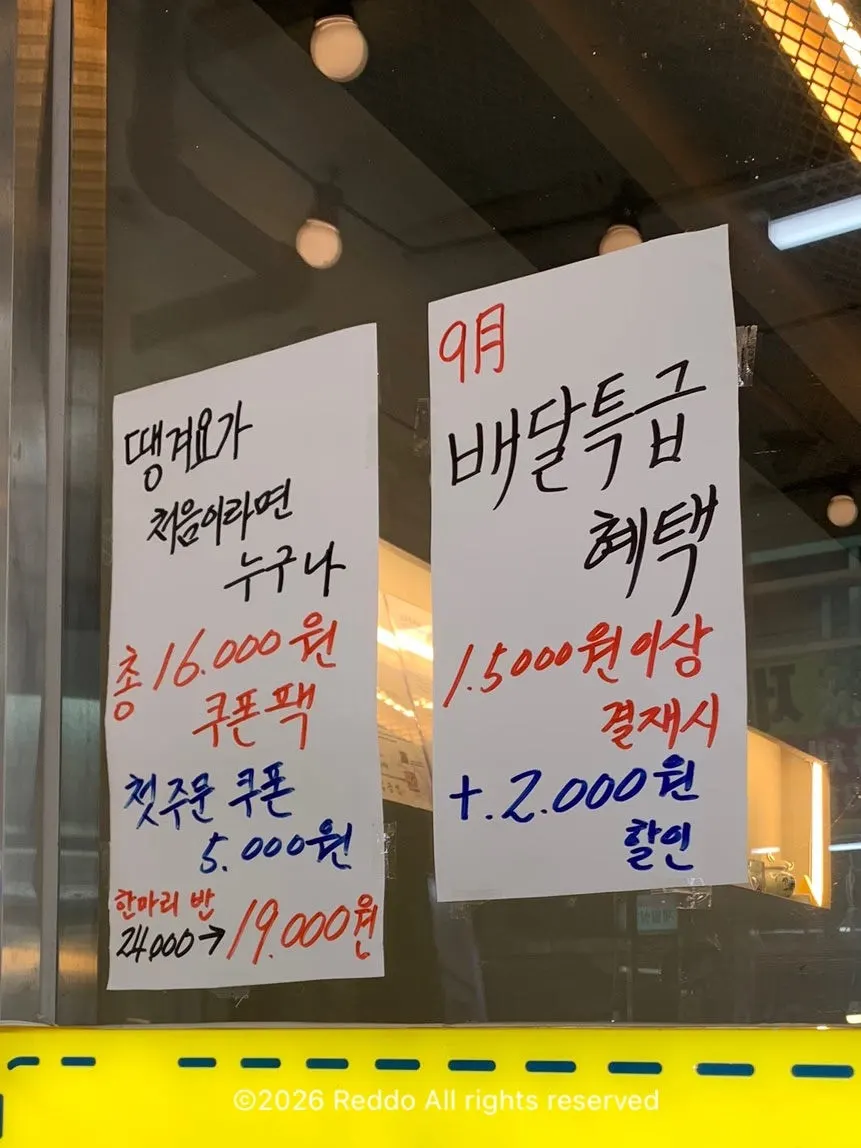 땡겨요가
처음이라면
누구나
총 16.000원
쿠폰팩
첫주문 쿠폰
5.000원
한마리 반
24,000→19.000원
9月
배달특급
혜택
1.5000원이상
결재시
+.2.000원
할인
©2026 Reddo All rights reserved